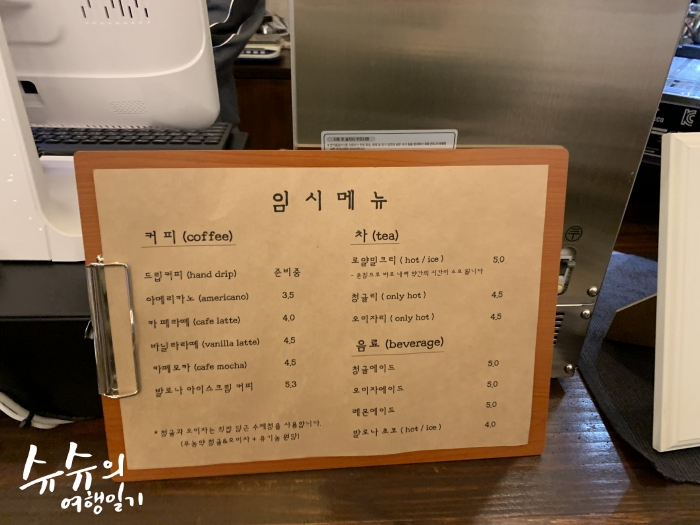 임시메뉴
커피 (coffee)
드립커피 (hand drip) 준비중
아메리카노 (americano) 3,5
카페라떼 (cafe latte) 4,0
바닐라라떼 (vanilla latte) 4,5
카페모카 (cafe mocha) 4,5
발로나 아이스크림 커피 5,3
* 청귤과 오미자는 직접 담근 수제청을 사용합니다.
(무농약 청귤&오미자 + 유기농 원당)
차 (tea)
로얄밀크티 ( hot / ice ) 5,0
- 주문으로 바로 내려 약간의 시간이 소요 됩니다
청귤티 ( only hot ) 4,5
오미자티 ( only hot ) 4,5
음료 (beverage)
청귤에이드 5,0
오미자에이드 5,0
레몬에이드 5,0
발로나 쵸코 ( hot / ice ) 4,0
슈슈의
여행일기